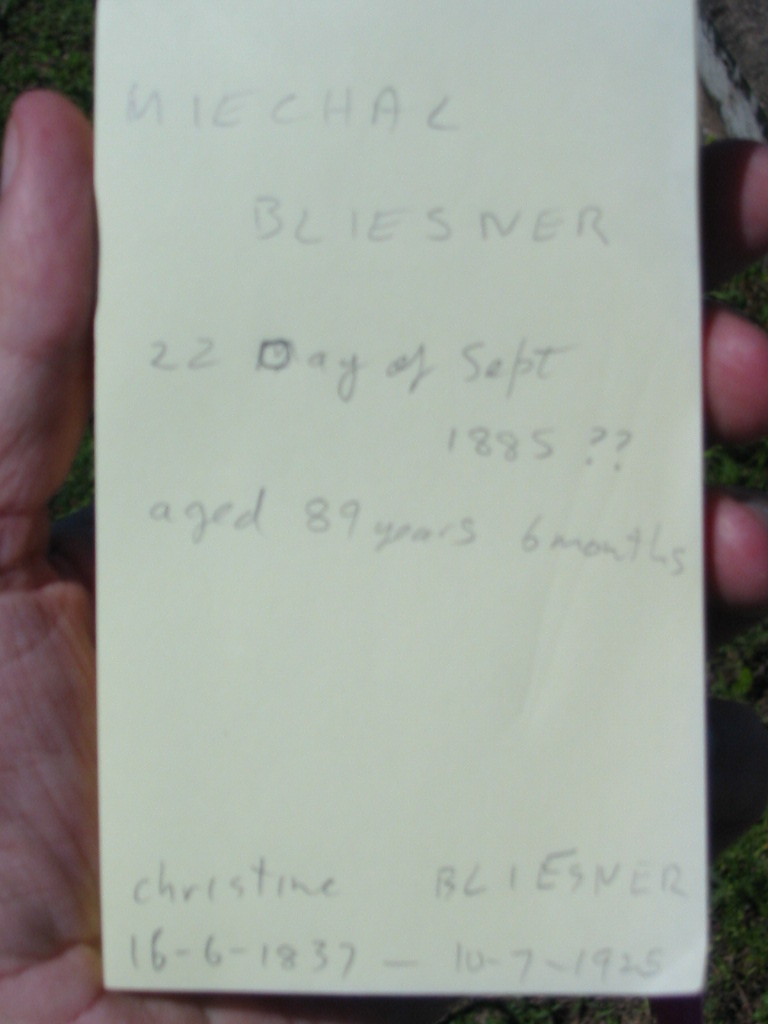 MIECHAL
BLIESNER
22 Day of Sept
1885 ??
aged 89 years 6 months
christine BLIESNER
16-6-1837 — 10-7-1925